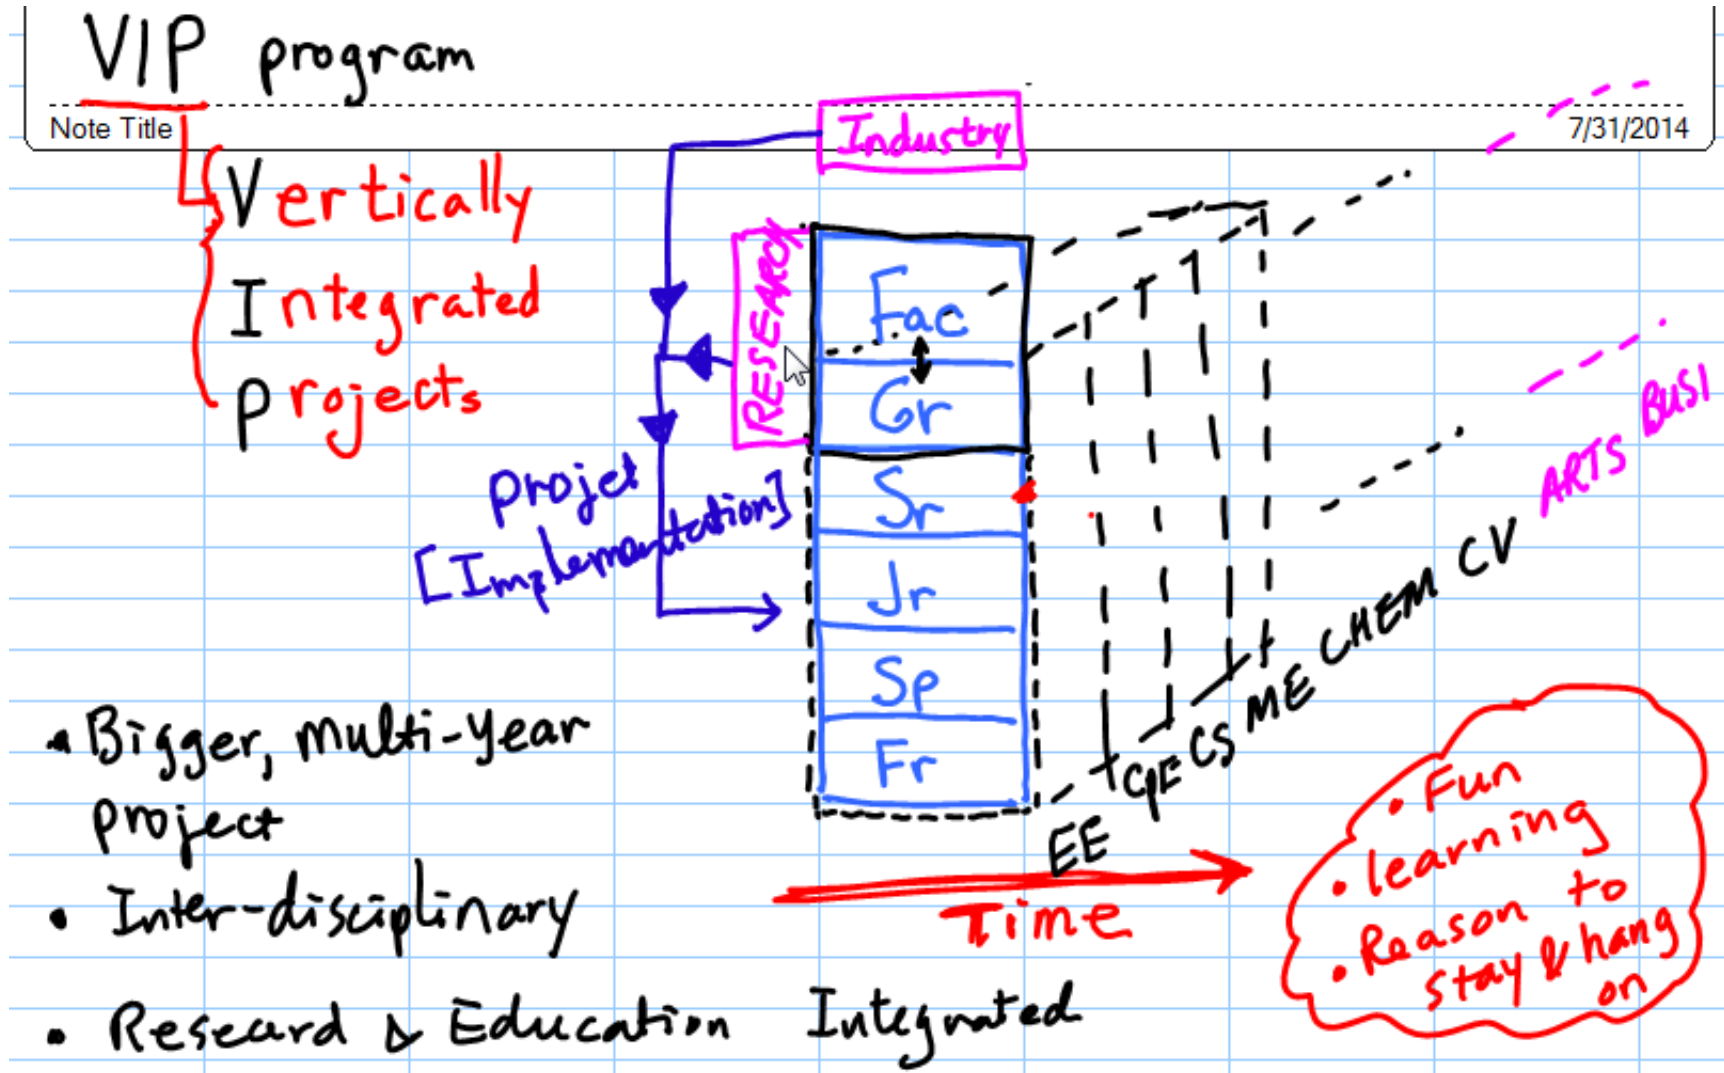 VIP program
Note Title
7/31/2014
Industry
Vertically
Integrated
Projects
RESEARCH
Fac
Gr
Sr
Jr
Sp
Fr
projet
[Implementation]
EE
CPE
CS
ME
CHEM
CV
ARTS
BUSI
Time
• Bigger, multi-year
project
• Inter-disciplinary
• Researd & Education Integrated
• Fun
• learning
• Reason to
stay & hang
on